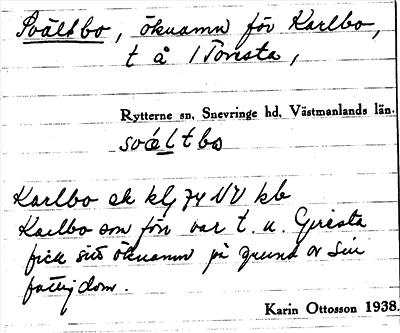 Svältbo, öknamn för Karlbo,
t å 1 Torsta,
Rytterne sn, Snevringe hd, Västmanlands län.
svältbo
Karlbo ek klg 74 NV kb
Karlbo som förr var t. u. Gresta
fick sitt öknamn på grund av sin
fattigdom.
Karin Ottosson 1938.